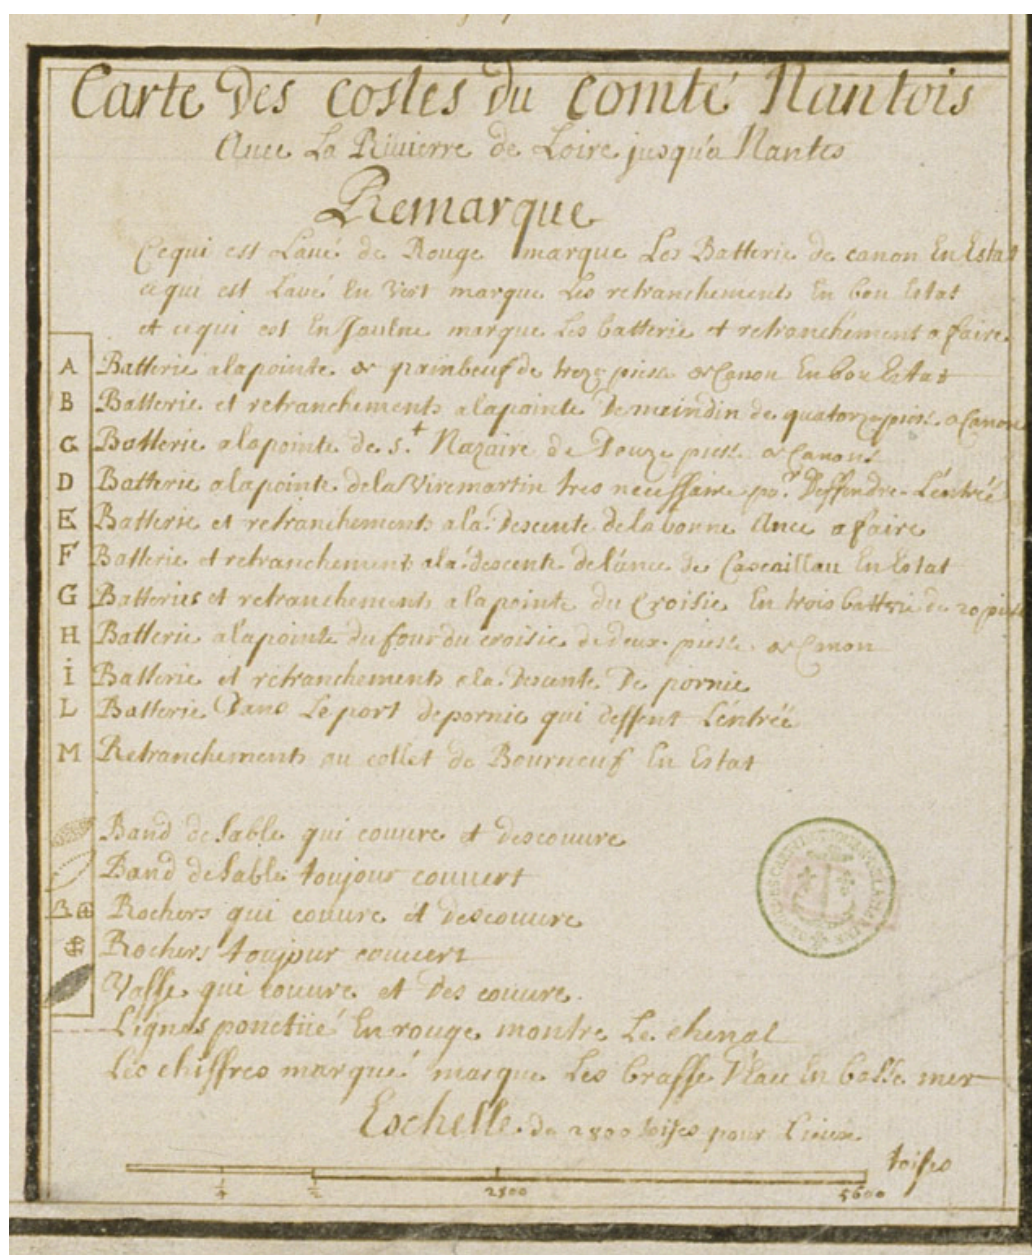 Carte Des costes du comté Nantois
Avec La Rivierre de Loire jusqu'a Nantes
Remarque
Cequi est Lavé de Rouge marque Les Batterie de canon En Estat
cequi est Lavé En Vert marque Les retranchements En bon Estat
et cequi est En Jaulne marque Les batterie et retranchement a faire
A Batterie alapointe de painbeuf de treze piesse de Canon En bon Estat
B Batterie et retranchements alapointe De meindin de quatorze piesse a Canon
C Batterie alapointe de St Nazaire de Douze piesse de Canons
D Batterie alapointe dela Viremartin tres necessaire pr Deffendre L'entrée
E Batterie et retranchements ala Descente dela bonne Ance a faire
F Batterie et retranchement ala descente de l'ance de Cascaillau En Estat
G Batteries et retranchements alapointe du Croisic En trois batterie de 20 piesse
H Batterie alapointe du four du croisic de deux piesse de Canon
i Batterie et retranchements ala Descente De pornic
L Batterie Dans Le port depornic qui deffent L'entrée
M Retranchements au collet de Bourneuf En Estat
Band de Sable qui couvre et descouvre
Band de Sable toujour couvert
Rochers qui couvre et descouvre
Rochers toujour couvert
Vasse qui couvre et Des couvre
Lignes ponctüé En rouge montre Le chenal
Les chiffres marqué marque Les brasse D'eau En basse mer
Eschelle de 2800 toises pour Lieue
toises
2800 5600